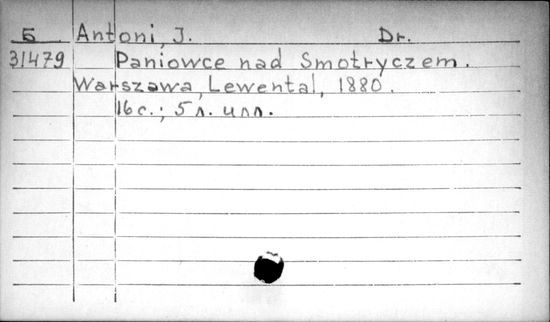 Б Antoni, J. Dr.
31479 Paniowce nad Smotryczem.
Warszawa, Lewental, 1880.
16 с.; 5 л. илл.